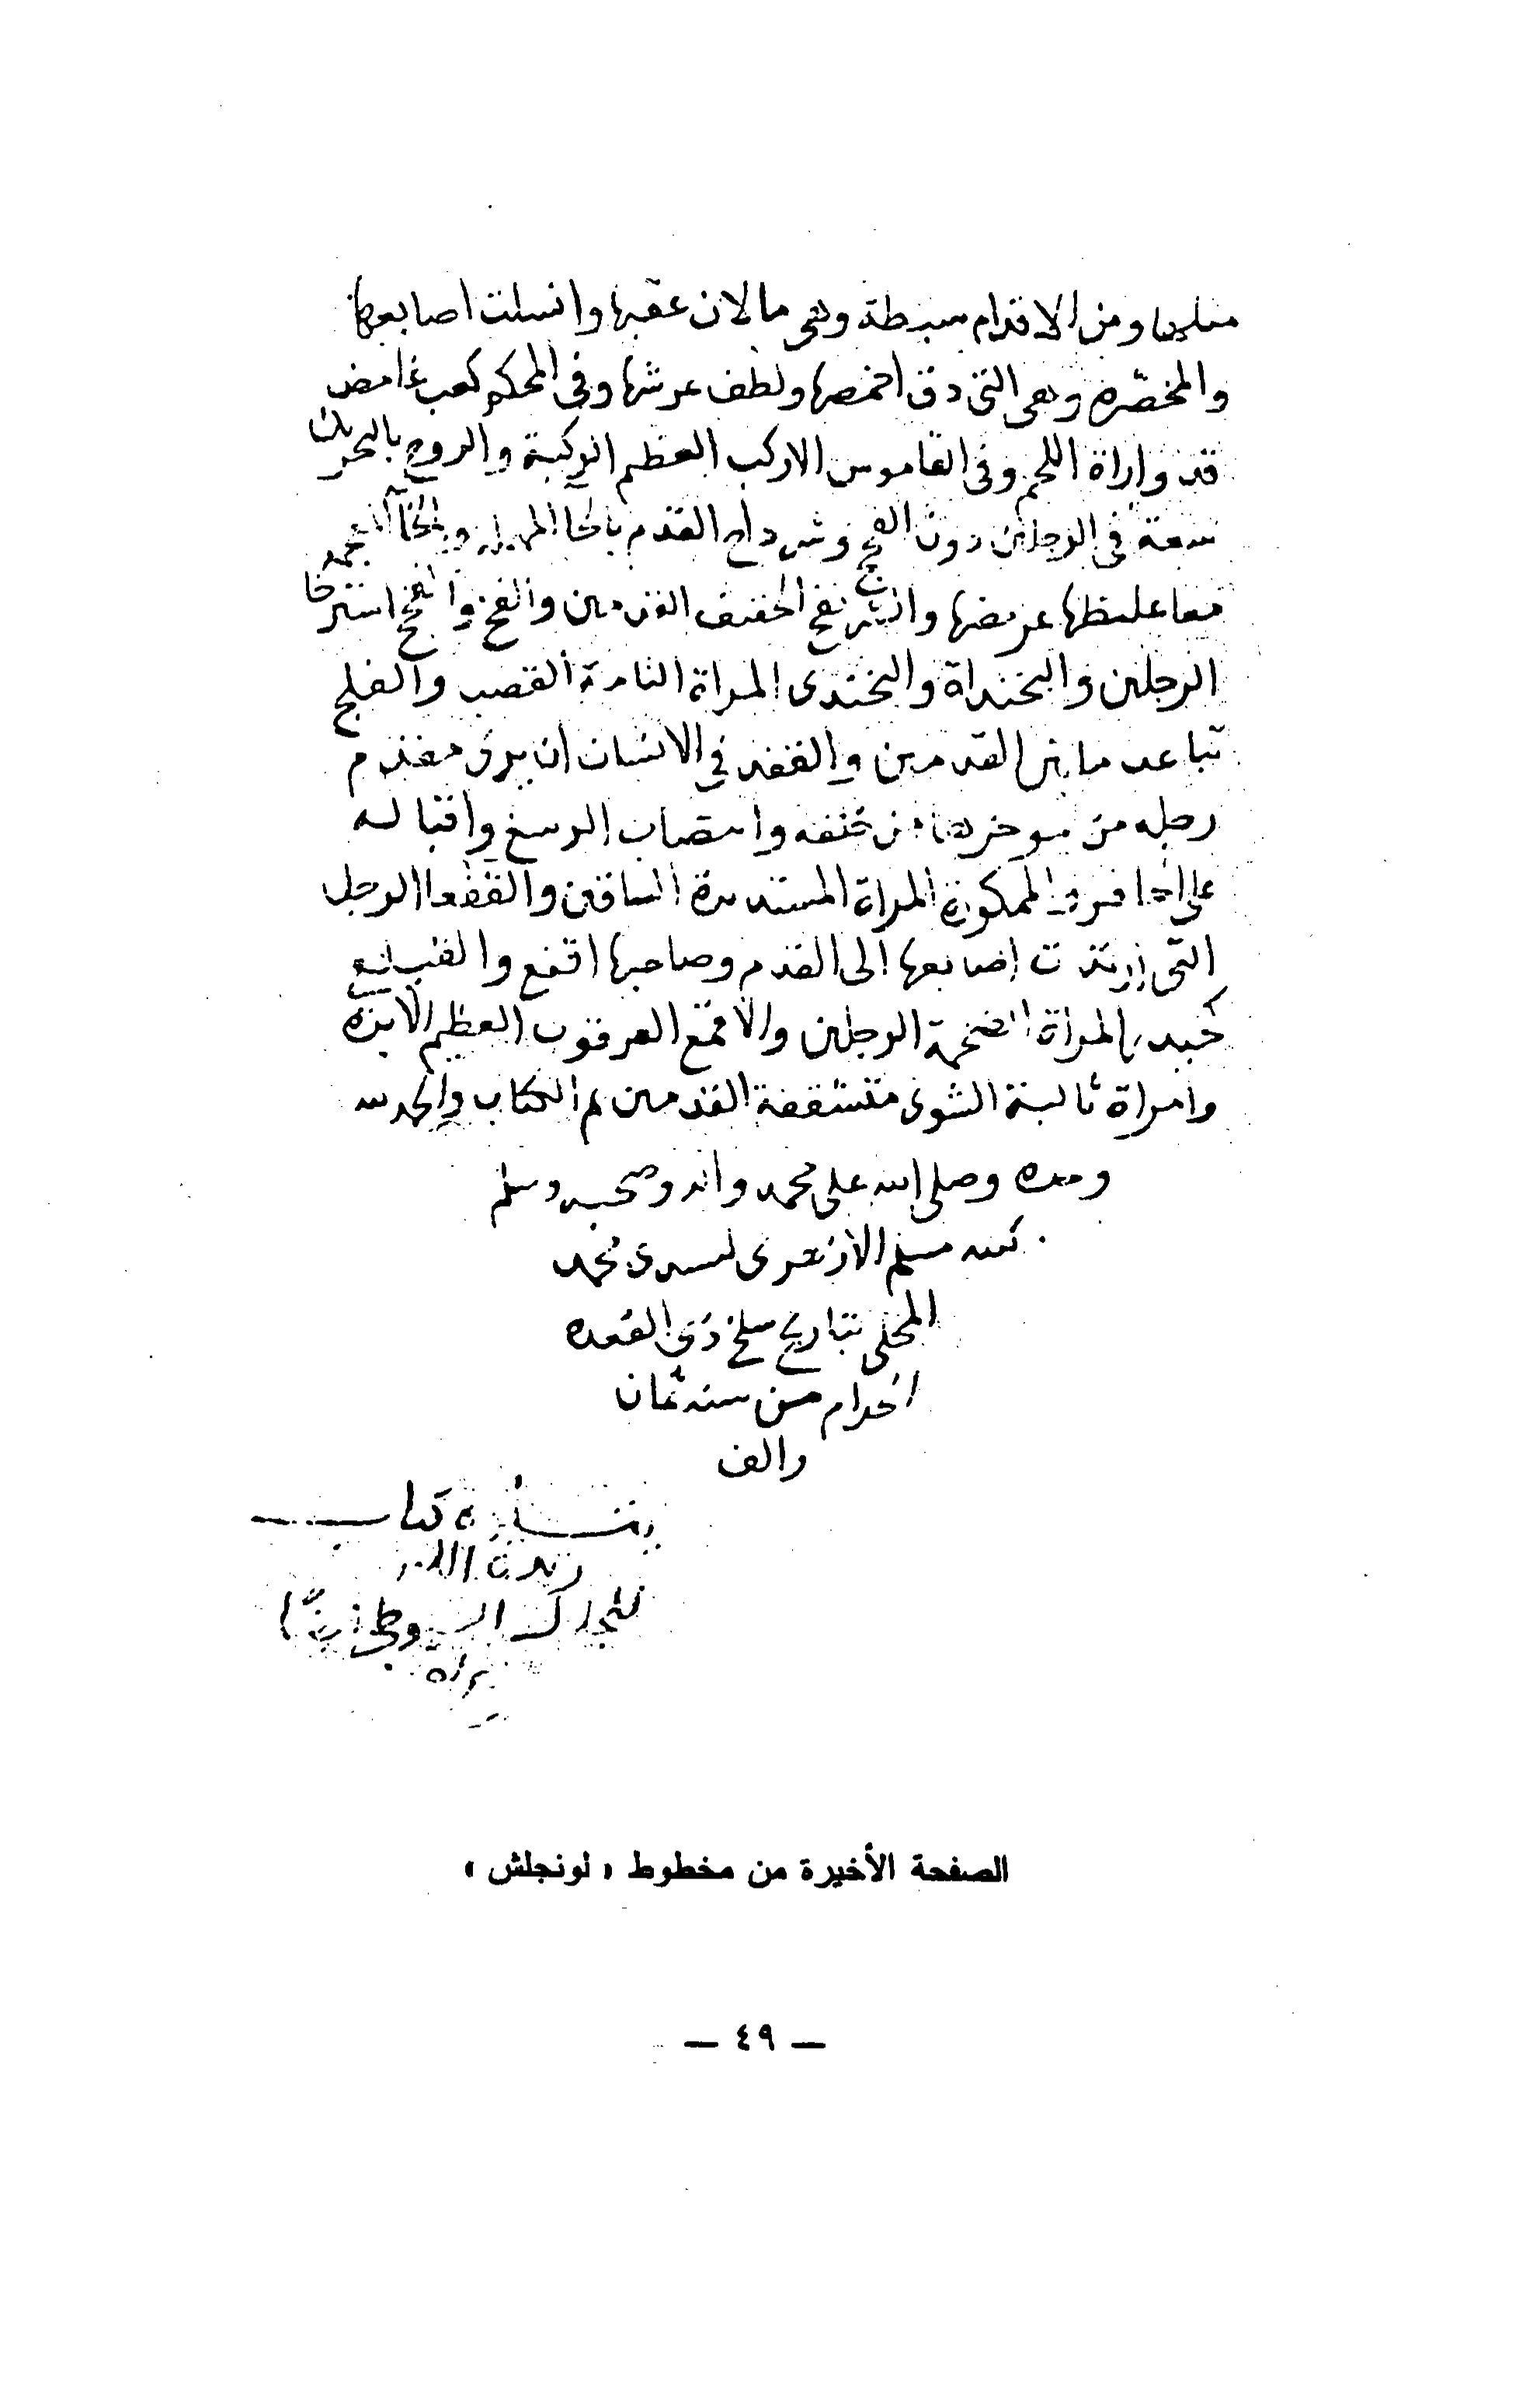 ومن الاقدام سبطة وهى مالان عقبها وانسلت اصابعها
والمخصره وهى التى دق اخمصها ولطف عرشها وفى المحكم كعب غامض
قد واراة اللحم وفى القاموس الاركب العظم الركبة والروح بالتحريك
سعة فى الرجلين دون الفحج وشرداح القدم بالحا المهملة وبالخا المعجمه
معا غليظها عريضها الخفيف القدمين والفخ استرخا
الرجلين والبخنداة والبخندى المراة التامة القصب والفلج
تباعد ما بين القدمين والقفد فى الانسان ان يرى مقدم
رجله من موخرها من خلفه وانتصاب الرسغ واقباله
على الحافر والممكورة المراة المستديرة الساقين والقفعا الرجل
التى ارتدت اصابعها الى القدم وصاحبها اقفع
المراة الضخمة الرجلين والاقمع العرقوب العظيم الابرة
وامراة الشوى متشققة القدمين تم الكتاب والحمد لله
وحده وصلى الله على محمد واله وصحبه وسلم
كتبه مسلم الازهرى لسيدى محمد
المحلى بتاريخ سلخ ذى القعده
الحرام من سنه ثمان
والف
كتاب
السيوطى
الصفحة الأخيرة من مخطوط « لونجلش »
— ٤٩ —